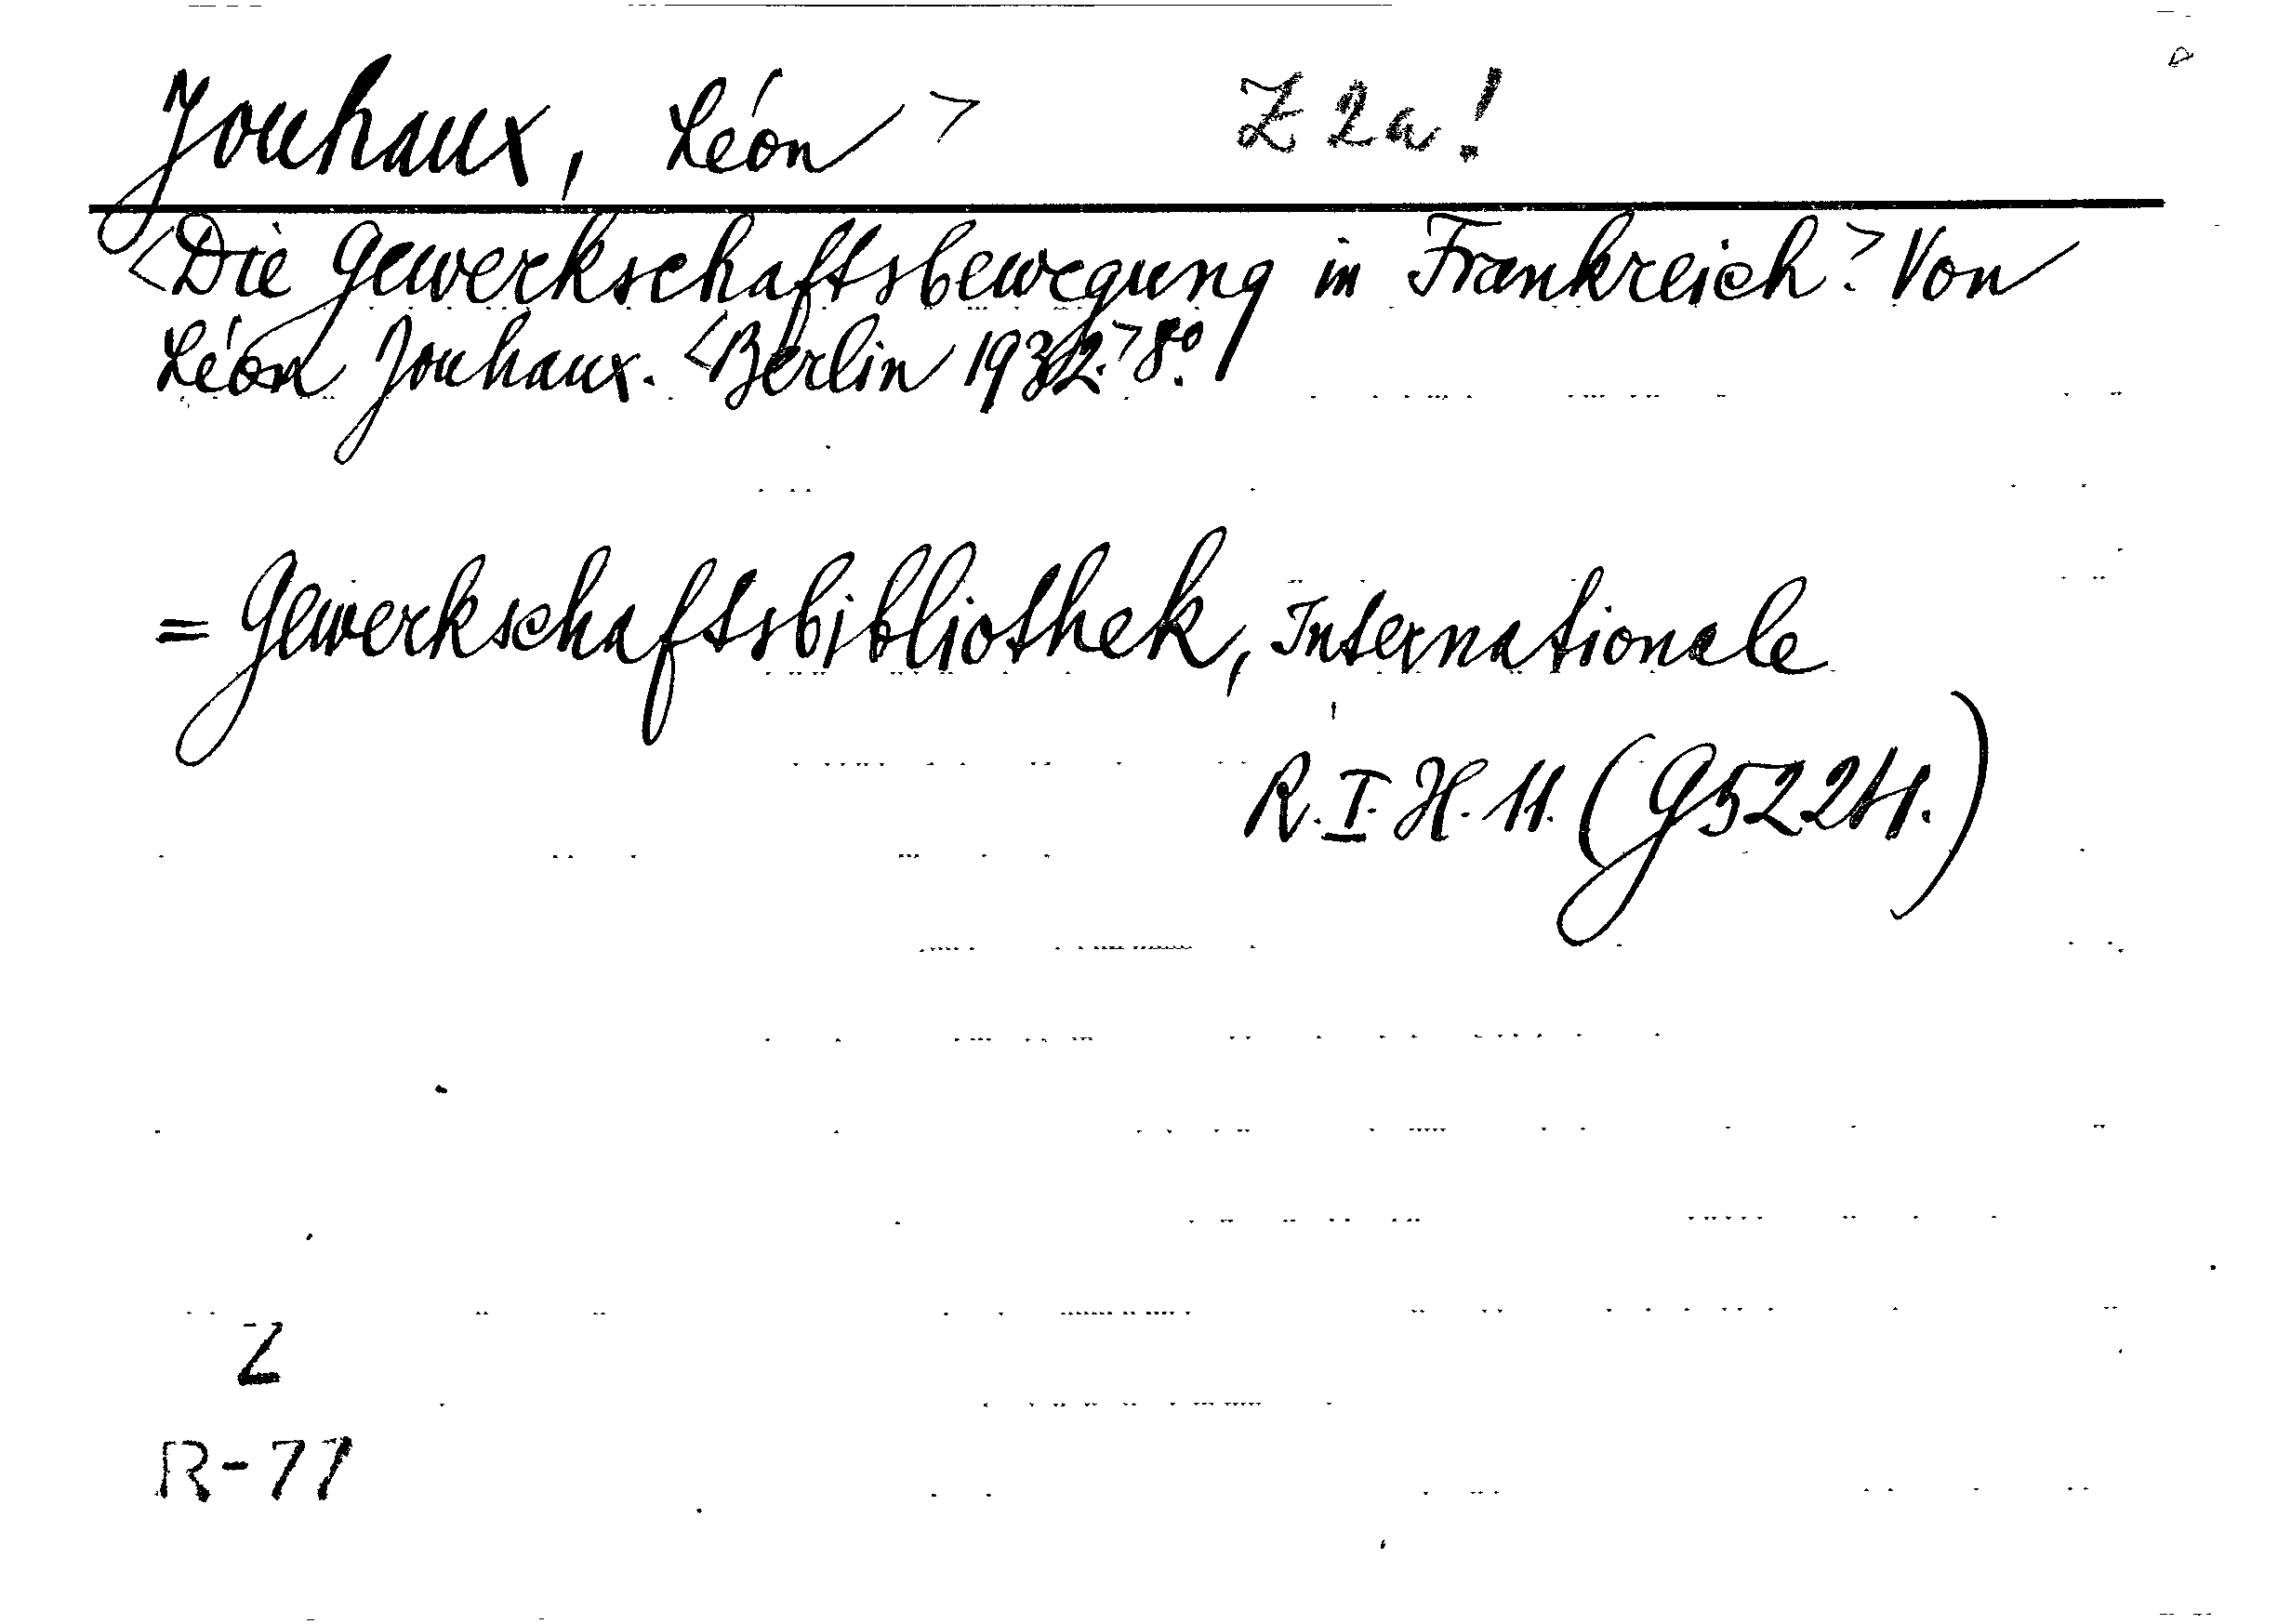 Jouhaux, Léon > Z 2a!
<Die Gewerkschaftsbewegung in Frankreich.> Von
Léon Jouhaux. <Berlin 1932.> 8°.
= Gewerkschaftsbibliothek, Internationale
R. I. H. 11. (G 5224.)
Z
R-77